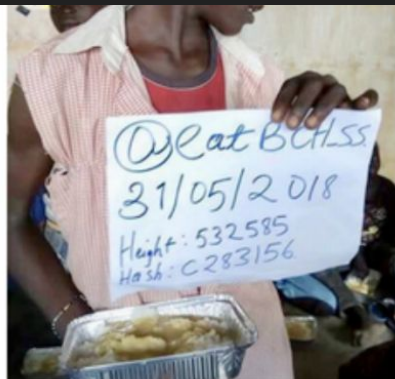 @eatBCH_SS.
31/05/2018
Height: 532585
Hash: C283156